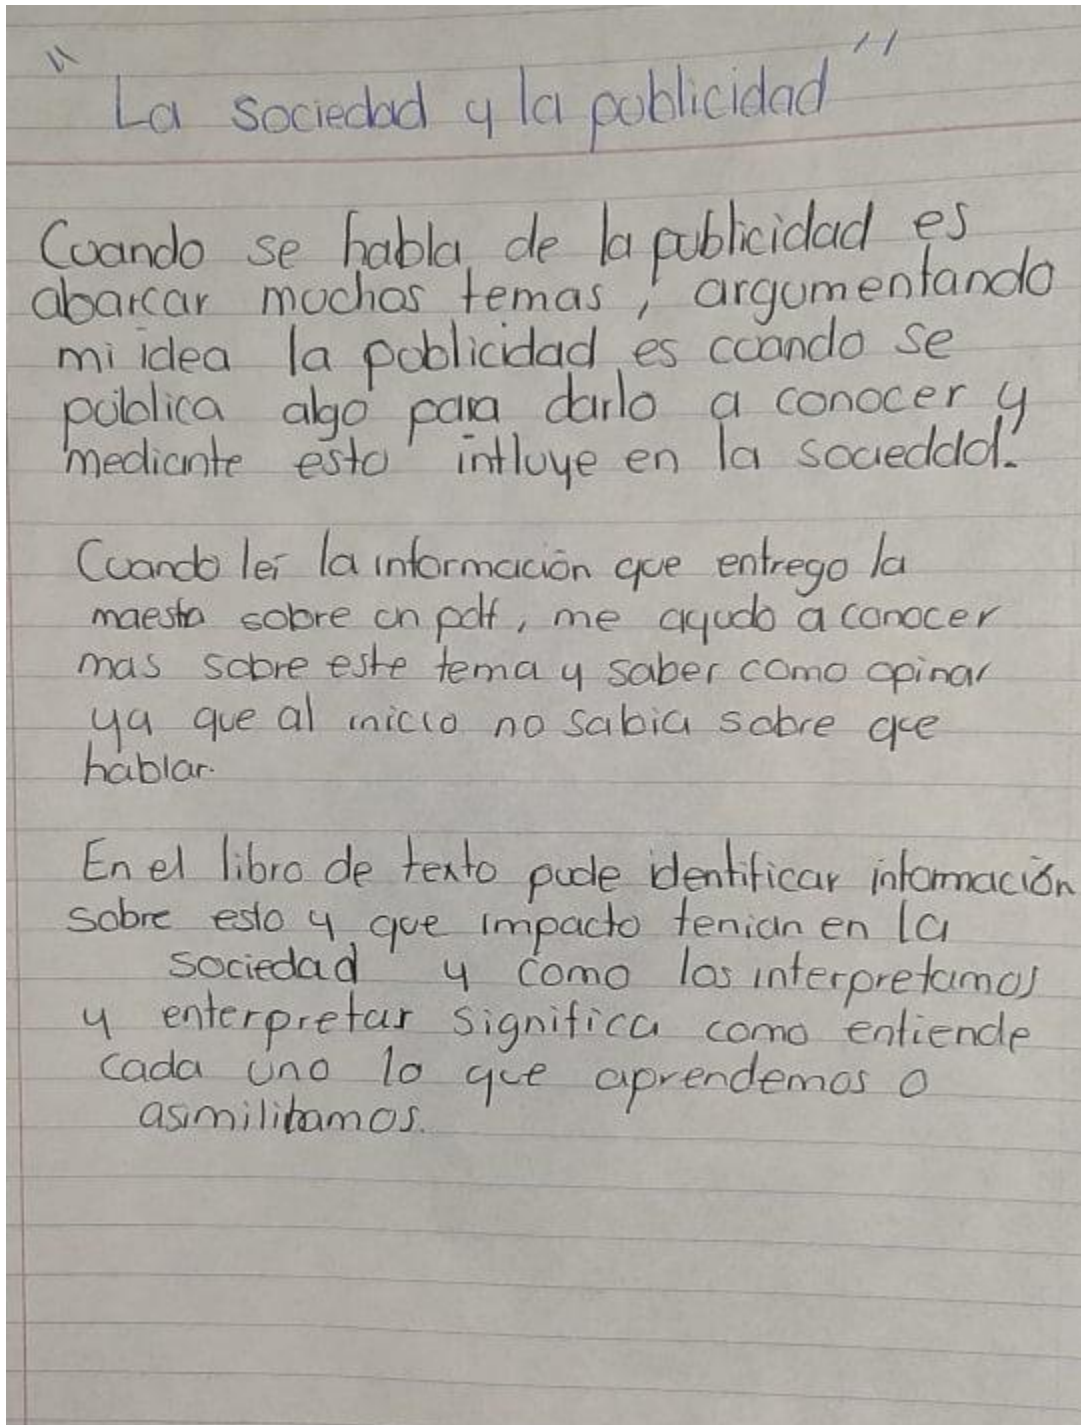 "La sociedad y la publicidad"
Cuando se habla de la publicidad es
abarcar muchos temas, argumentando
mi idea la publicidad es cuando se
pública algo para darlo a conocer y
mediante esto influye en la sociedad.
Cuando leí la información que entrego la
maesta sobre un pdf, me ayudo a conocer
mas sobre este tema y saber como opinar
ya que al inicio no sabia sobre que
hablar.
En el libro de texto pude identificar información
sobre esto y que impacto tenian en la
sociedad y como los interpretamos
y enterpretar significa como entiende
cada uno lo que aprendemos o